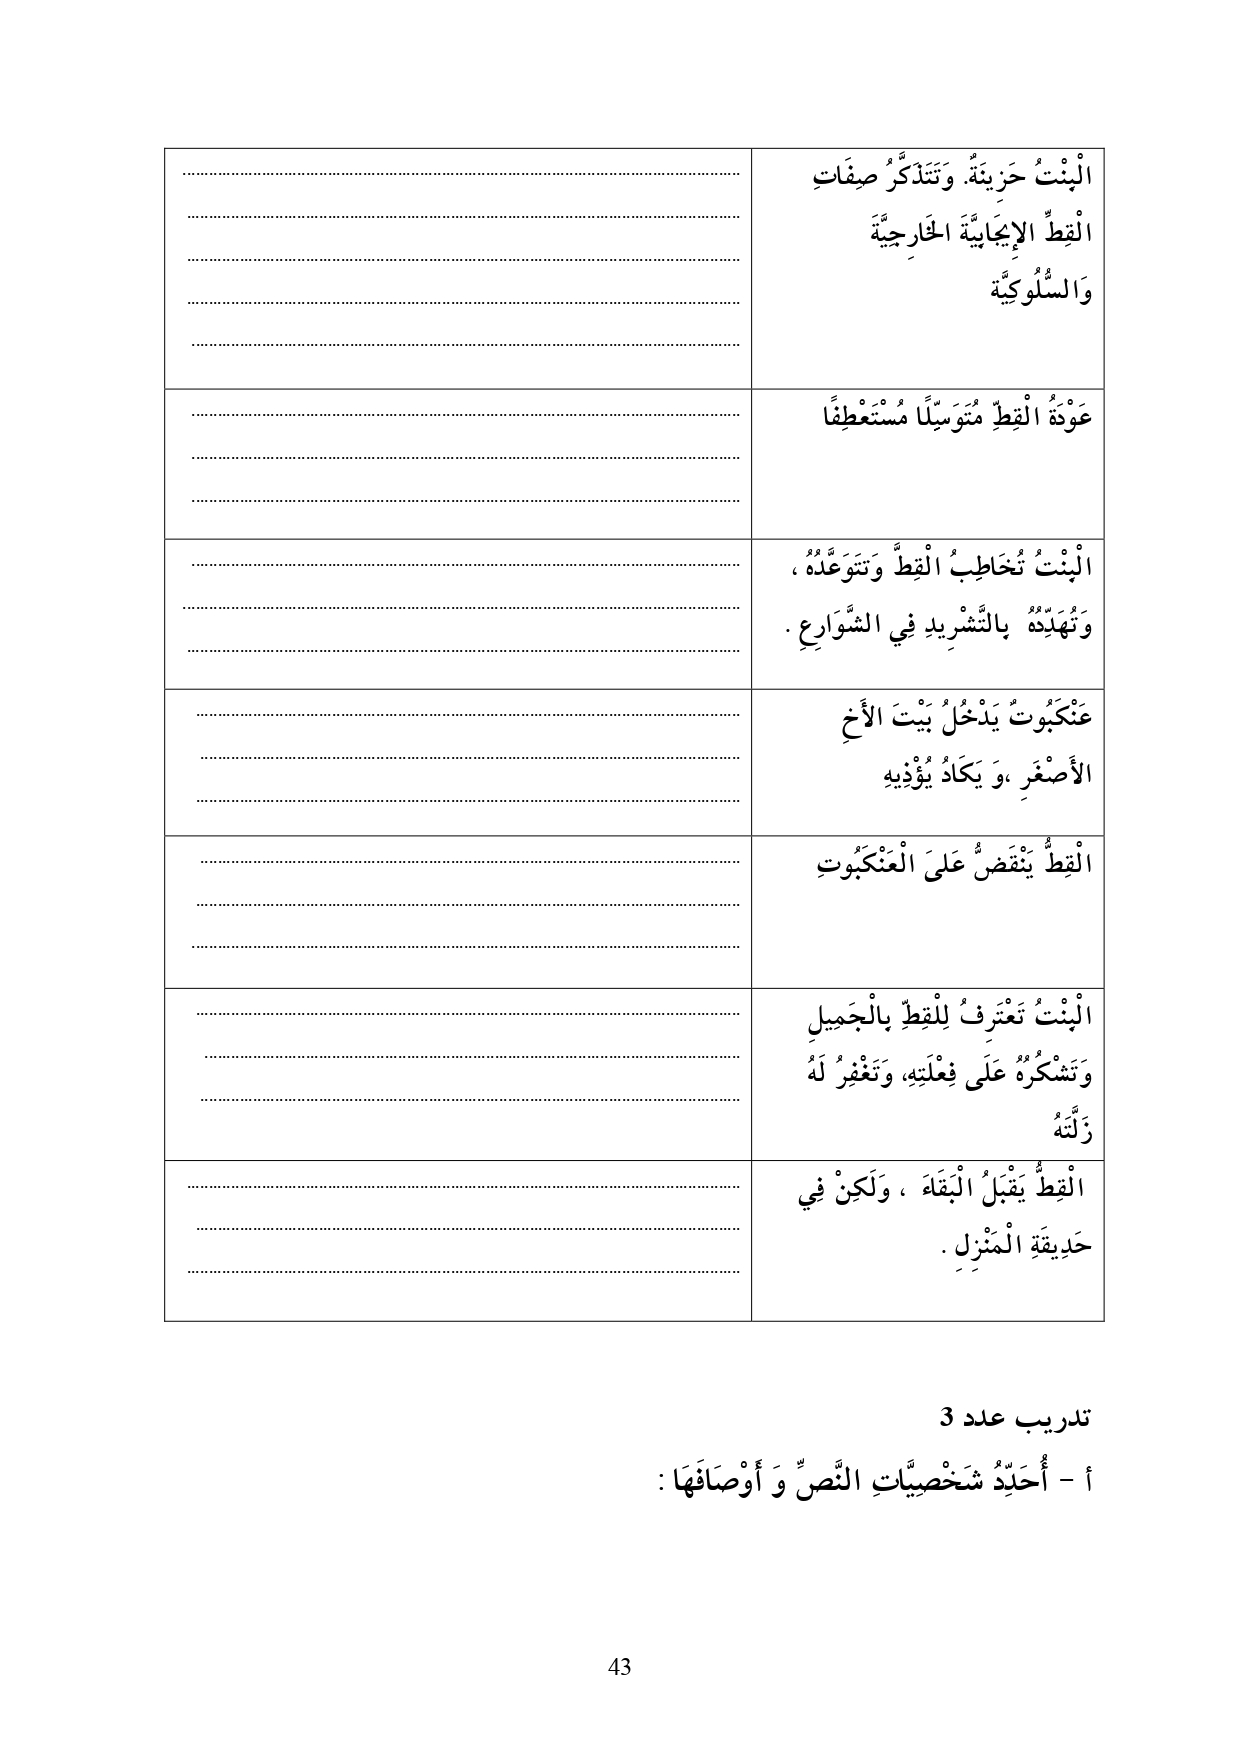 الْبِنْتُ حَزِينَةٌ. وَتَتَذَكَّرُ صِفَاتِ
الْقِطِّ الإِيجَابِيَّةَ الخَارِجِيَّةَ
وَالسُّلُوكِيَّة
عَوْدَةُ الْقِطِّ مُتَوَسِّلًا مُسْتَعْطِفًا
الْبِنْتُ تُخَاطِبُ الْقِطَّ وَتَتَوَعَّدُهُ ،
وَتُهَدِّدُهُ بِالتَّشْرِيدِ فِي الشَّوَارِعِ .
عَنْكَبُوتٌ يَدْخُلُ بَيْتَ الأَخِ
الأَصْغَرِ ،وَ يَكَادُ يُؤْذِيهِ
الْقِطُّ يَنْقَضُّ عَلىَ الْعَنْكَبُوتِ
الْبِنْتُ تَعْتَرِفُ لِلْقِطِّ بِالْجَمِيلِ
وَتَشْكُرُهُ عَلَى فِعْلَتِهِ، وَتَغْفِرُ لَهُ
زَلَّتَهُ
الْقِطُّ يَقْبَلُ الْبَقَاءَ ، وَلَكِنْ فِي
حَدِيقَةِ الْمَنْزِلِ .
تدريب عدد 3
أ – أُحَدِّدُ شَخْصِيَّاتِ النَّصِّ وَ أَوْصَافَهَا :
43